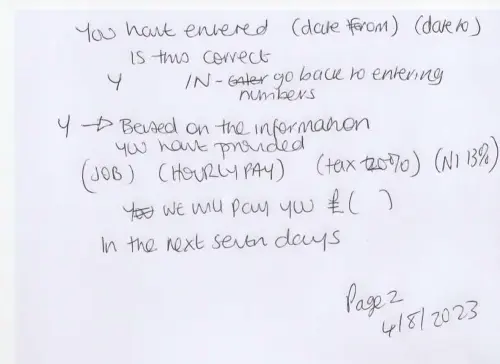 You have entered (date from) (date to)
Is this correct
Y /N - enter go back to entering
numbers
Y → Based on the information
you have provided
(JOB) (HOURLY PAY) (tax 20%) (NI 13%)
You we will pay you £( )
In the next seven days
Page 2
4/8/2023